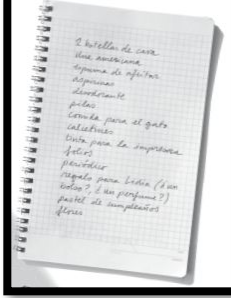 2 botellas de cava
una americana
espuma de afeitar
aspirinas
desodorante
pilas
comida para el gato
calcetines
tinta para la impresora
folios
periódico
regalo para Lidia (¿un
bolso?, ¿un perfume?)
pastel de cumpleaños
flores